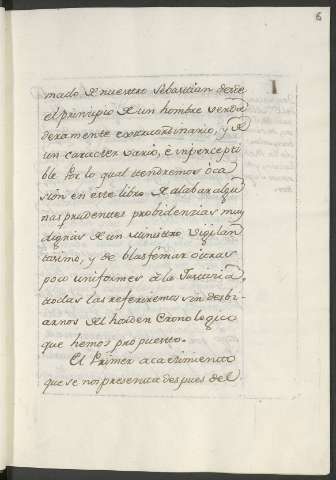 6
mado de nuestro Sebastian desde
el principio de un hombre verda
deramente extraordinario, y de
un caracter vario, è inpercepti
ble Por lo qual tendremos oca
sion en este libro de alabar algu
nas prudentes probidenzias muy
dignas de un Ministro vigilan
tisimo, y de blasfemar otras
poco uniformes à la Justizia,
todas las referiremos sin desbi-
arnos del horden Cronologico
que hemos propuesto.
El Primer acaezimiento
que se nos presenta despues del